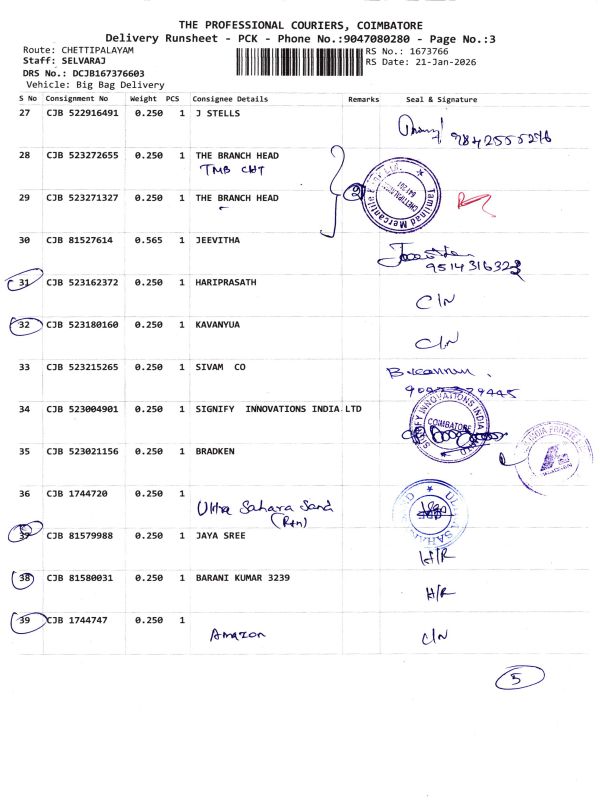 THE PROFESSIONAL COURIERS, COIMBATORE
Delivery Runsheet - PCK - Phone No.:9047080280 - Page No.:3
Route: CHETTIPALAYAM
RS No.: 1673766
Staff: SELVARAJ
RS Date: 21-Jan-2026
DRS No.: DCJB167376603
Vehicle: Big Bag Delivery
S No Consignment No Weight PCS Consignee Details Remarks Seal & Signature
27 CJB 522916491 0.250 1 J STELLS
9842555276
28 CJB 523272655 0.250 1 THE BRANCH HEAD
TMB CHT
29 CJB 523271327 0.250 1 THE BRANCH HEAD
29
Tamilnad Mercantile
30 CJB 81527614 0.565 1 JEEVITHA
9514316323
31 CJB 523162372 0.250 1 HARIPRASATH
C/N
32 CJB 523180160 0.250 1 KAVANYUA
C/N
33 CJB 523215265 0.250 1 SIVAM CO
34 CJB 523004901 0.250 1 SIGNIFY INNOVATIONS INDIA LTD
SIGNIFY INNOVATIONS INDIA
COIMBATORE
35 CJB 523021156 0.250 1 BRADKEN
INDIA PRIVATE
36 CJB 1744720 0.250 1
Ultra Sahara Sand
(Rtn)
37 CJB 81579988 0.250 1 JAYA SREE
H/R
38 CJB 81580031 0.250 1 BARANI KUMAR 3239
H/R
39 CJB 1744747 0.250 1
Amazon
C/N
5